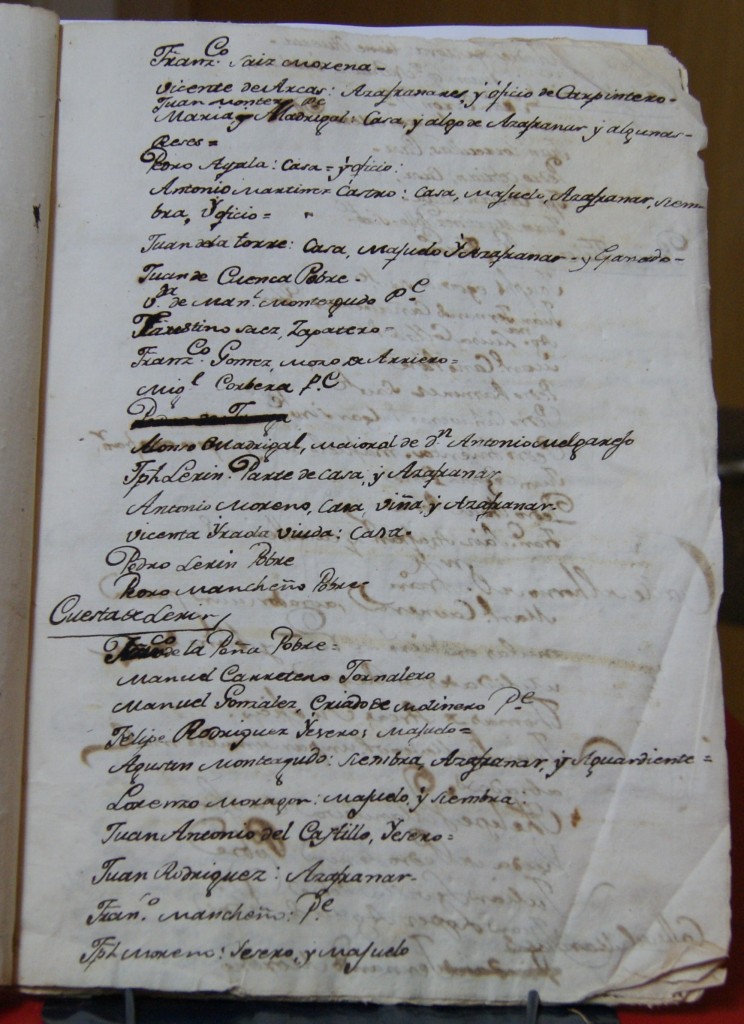 Franz.co Saiz Morena-
Vicente de Arcas: Azafranares, y óficio de Carpintero-
Juan Montero P.e
Maria Madrigal: Casa, y algo de Azafranar y algunas-
Reses=
Pedro Ayala: Casa= y oficio:
Antonio Martinez Castro: Casa, Majuelo, Azafranar, siem
bra, Yoficio=
Juan dela torre: Casa, Majuelo Y Azafranar- y Ganado-
Juan de Cuenca Pobre-
V.da de Man.l Monteagudo P.e
Saez, Zapatero-
Franz.co Gomez, Mozo de Arriero=
Mig.l Corbera P.e
Alonso Madrigal, Maioral de d.n Antonio Melgarejo
Jph Lerin: Parte de Casa, y Azafranar
Antonio Moreno, Casa viña, y Azafranar-
Vicenta Yrada viuda: Casa-
Pedro Lerin Pobre
Pedro Mancheño Pobre
Cuesta de Lerin
de la Peña Pobre=
Manuel Carretero Jornalero
Manuel Gonzalez, Criado de Molinero P.e
Felipe Rodriguez Yesero; Majuelo=
Agustin Monteagudo: Siembra, Azafranar, y Aguardiente=
Lorenzo Moragon: Majuelo, y Siembra:
Juan Antonio del Castillo, Yesero=
Juan Rodriguez: Azafranar-
Fran.co Mancheño: P.e
Jph Moreno: Yesero, y Majuelo